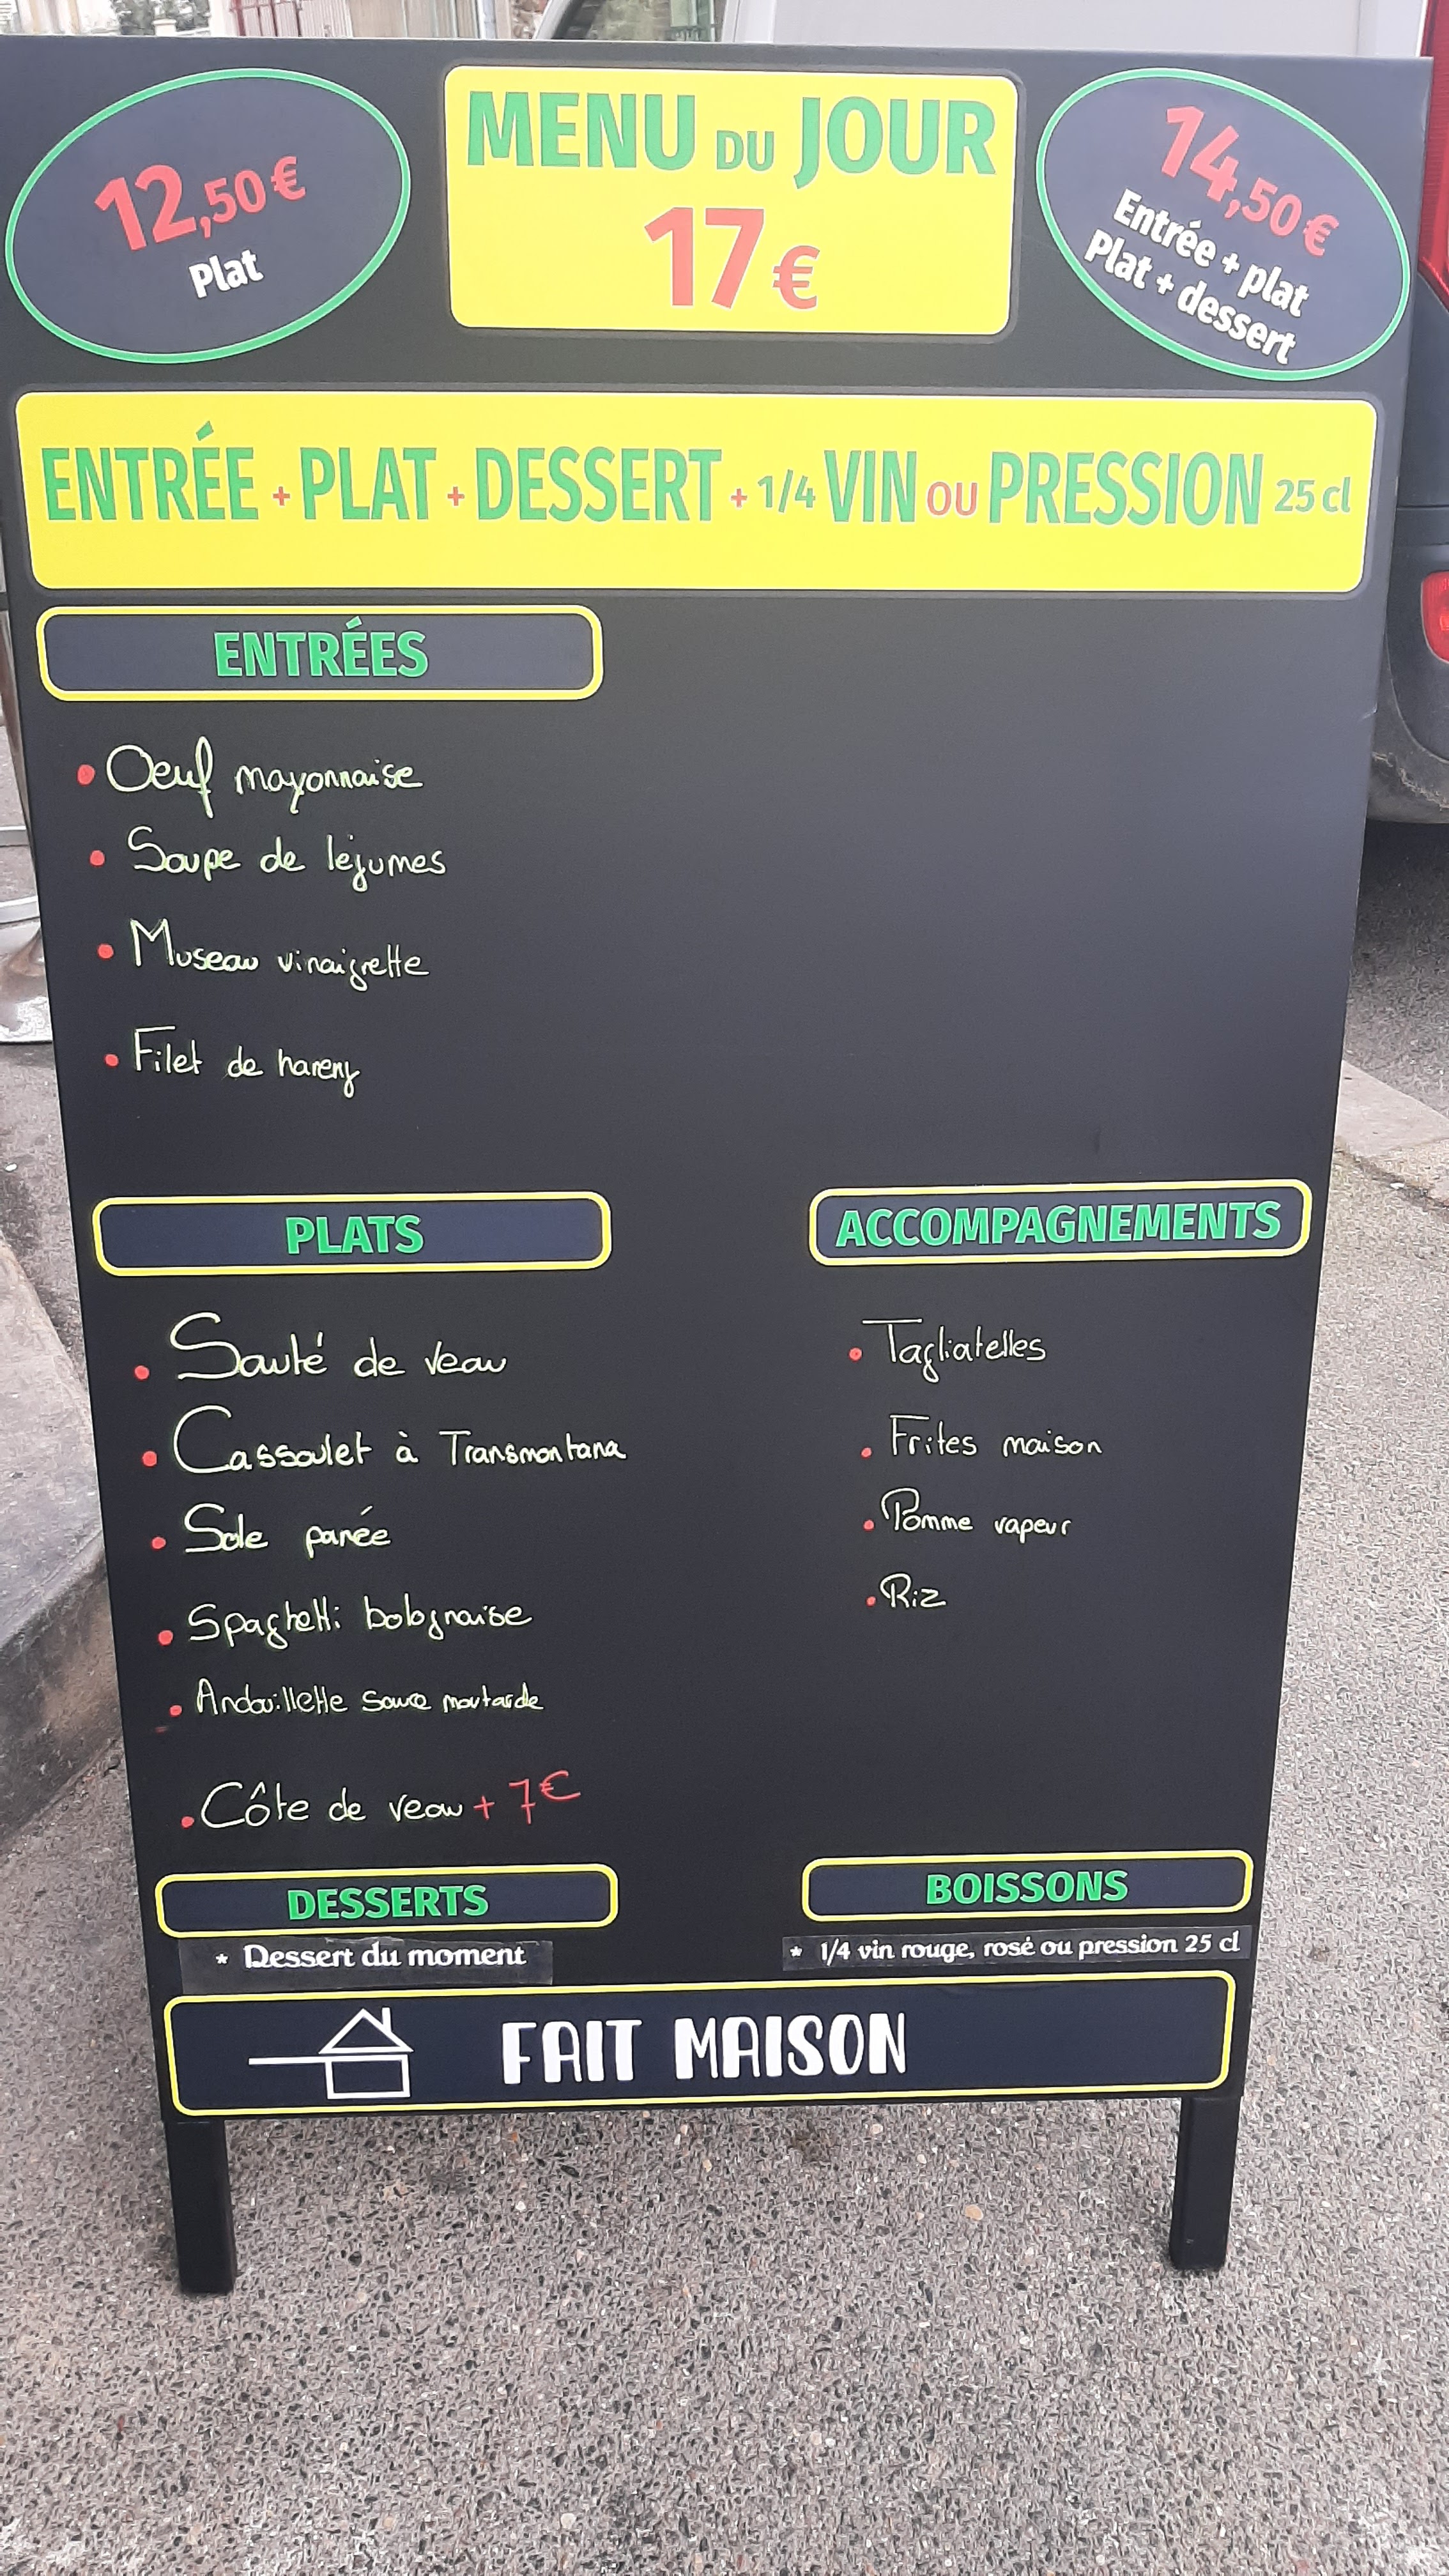 12,50€
Plat
MENU DU JOUR
17€
14,50€
Entrée + plat
Plat + dessert
ENTRÉE + PLAT + DESSERT + 1/4 VIN OU PRESSION 25 cl
ENTRÉES
• Oeuf mayonnaise
• Soupe de légumes
• Museau vinaigrette
• Filet de hareng
PLATS
• Sauté de veau
• Cassoulet à Transmontana
• Sole panée
• Spaghetti bolognaise
• Andouillette sauce moutarde
• Côte de veau + 7€
ACCOMPAGNEMENTS
• Tagliatelles
• Frites maison
• Pomme vapeur
• Riz
DESSERTS
* Dessert du moment
BOISSONS
* 1/4 vin rouge, rosé ou pression 25 cl
FAIT MAISON